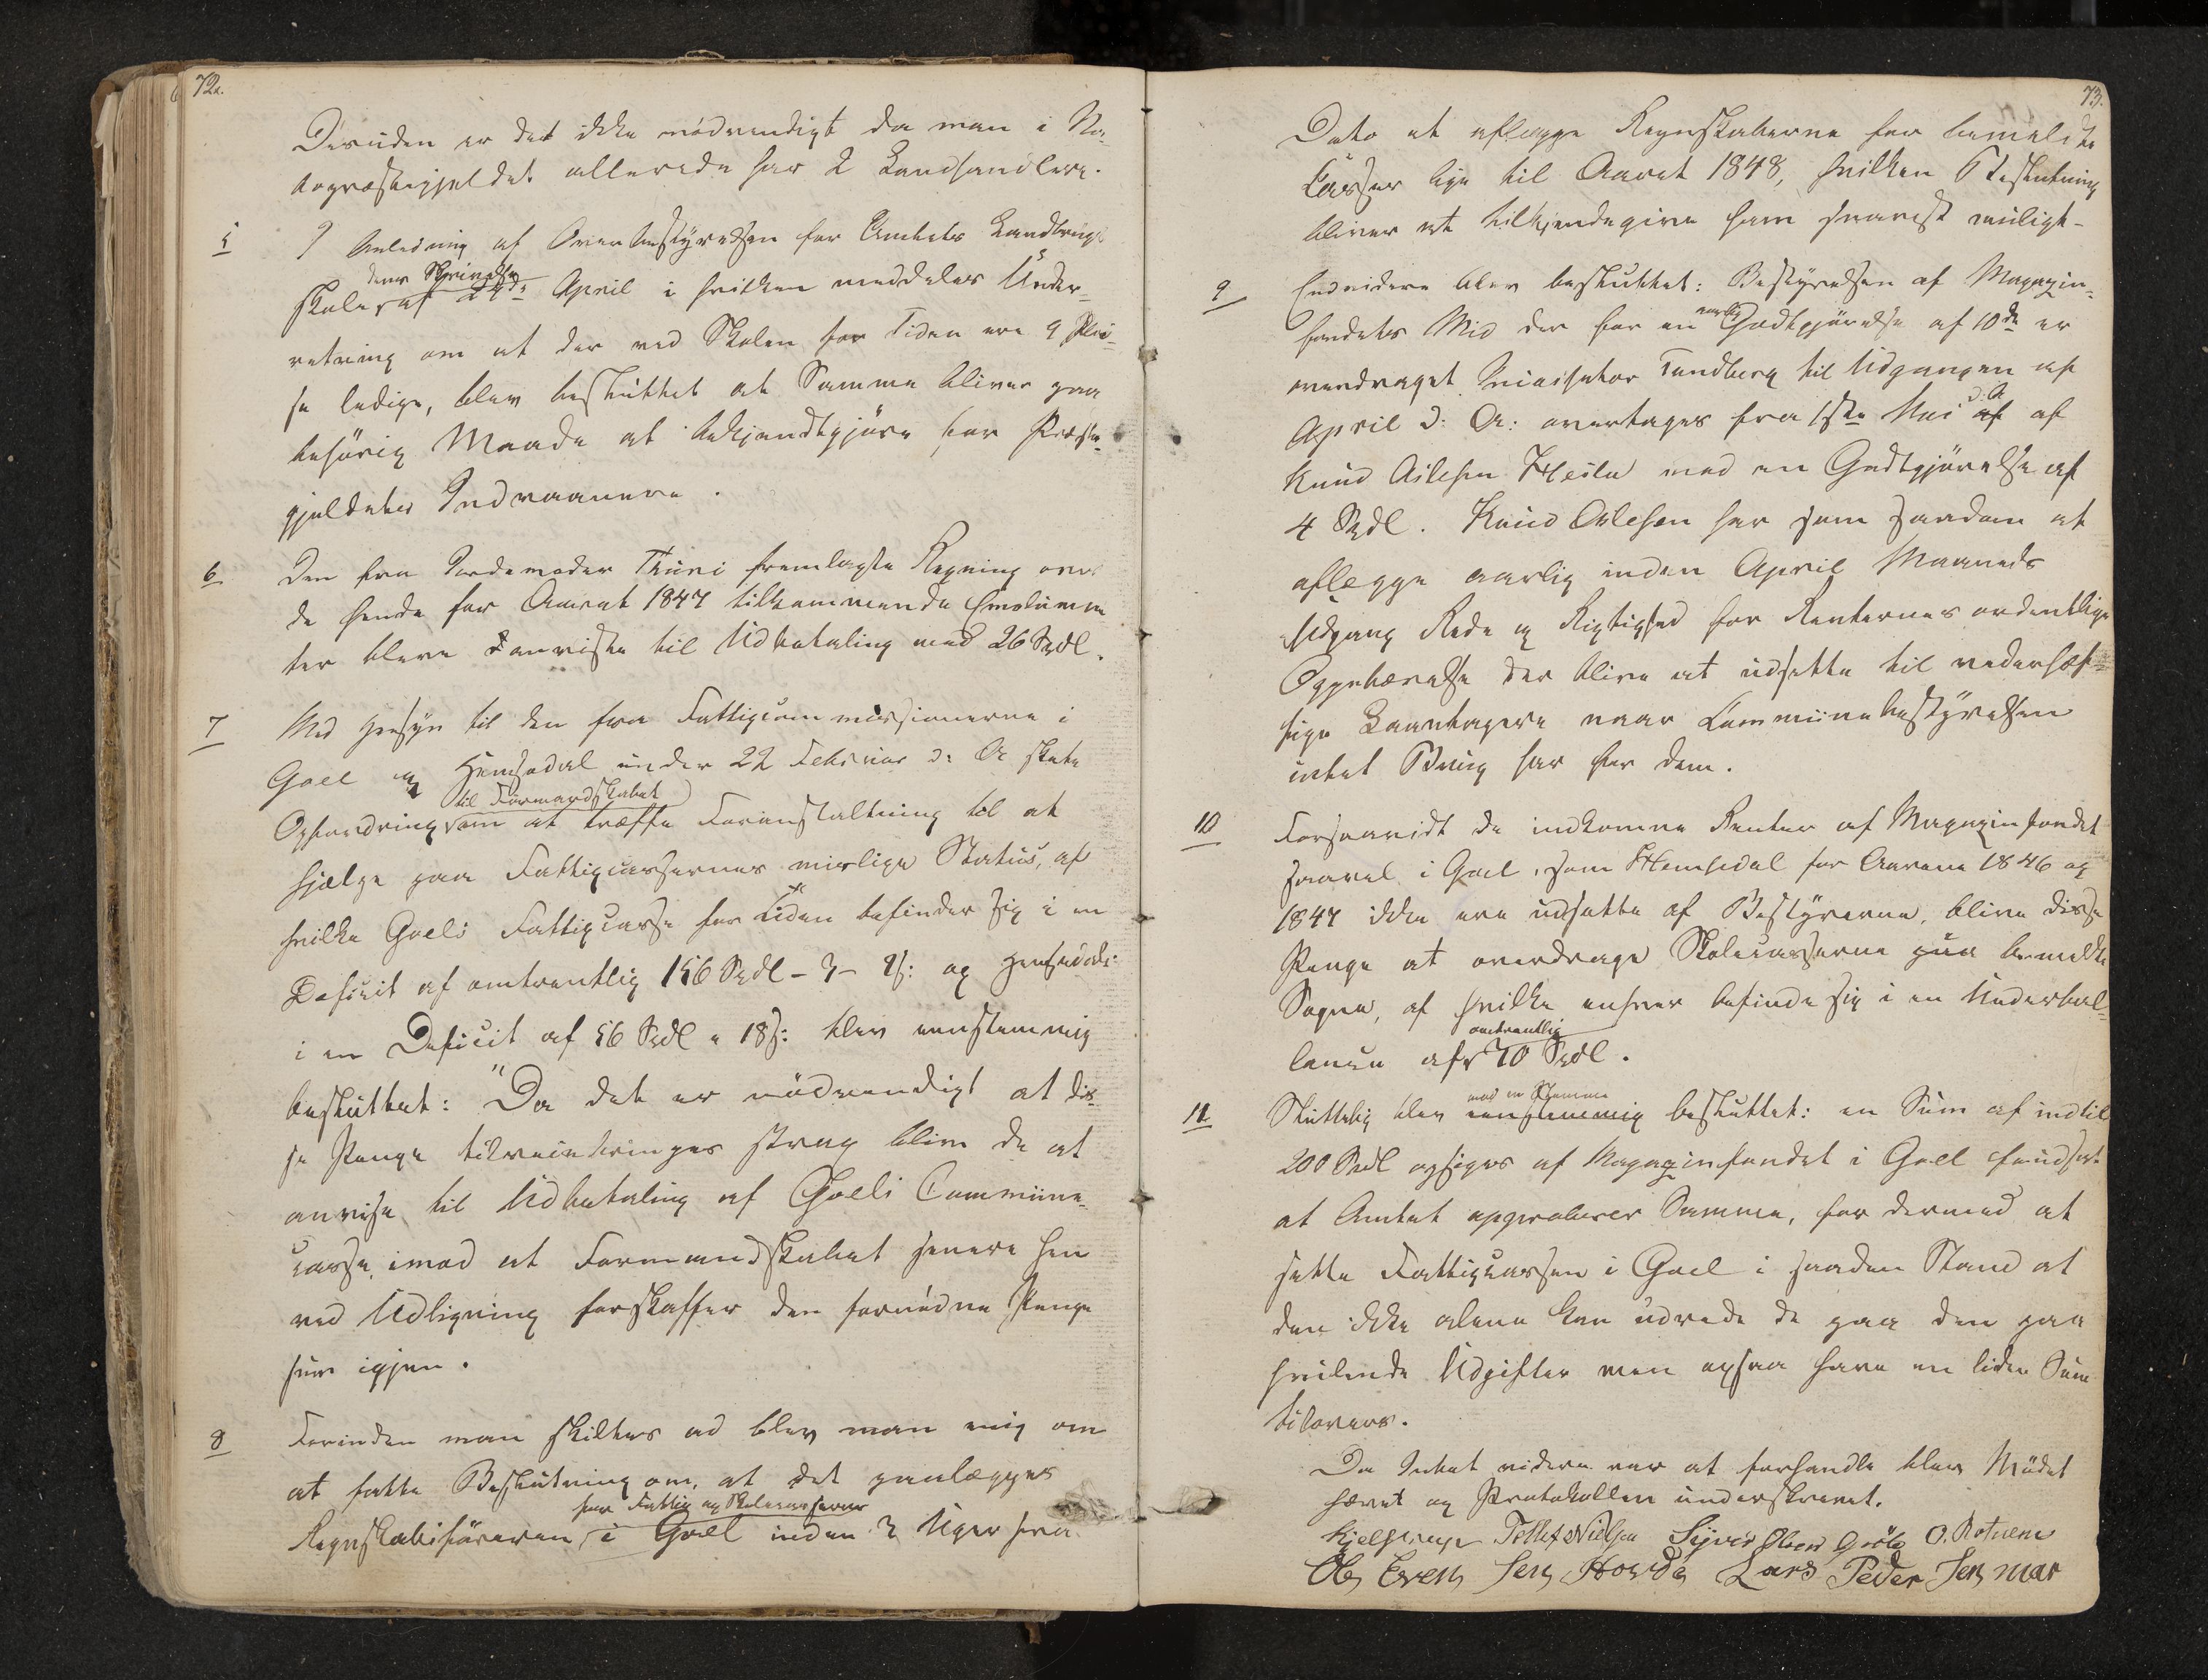 72.
Desuden er det ikke nødvendigt da man i Na-
bopræstegjeldet allerede har 2 Landhandlere.
5 I Anledning af Overbestyrelsen for Amtets Landbrugs
dens Skrivelse
skoles af 24de April i hvilken meddeles Under-
retning om at der ved Skolen for Tiden ere 9 Plad-
se ledige, blev besluttet at Samme bliver paa
behørig Maade at bekjendtgjøre for Præste-
gjeldets Indvaanere.
6 Den fra Jordemoder Thuri fremlagte Regning over
de hende for Aaret 1847 tilkommende Emolumen
ter bleve anviste til Udbetaling med 26 Spdl.
7 Med Hensyn til den fra Fattigcommissionerne i
Goel og Hemsedal under 22 Februar d: A skete
til Formandskabet
Opfordring om at træffe Foranstaltning til at
hjælpe paa Fattigcassernes mislige Status, af
hvilke Goels Fattigcasse for Tiden befinder sig i en
Deficit af omtrentlig 156 Spdl - 3 - 9 s: og Hemsedals
i en Deficit af 56 Spdl " 18 s: blev eenstemmig
besluttet: "Da det er nødvendigt at dis-
se Penge tilveiebringes strax blive de at
anvise til Udbetaling af Goels Commune-
casse, imod at Formandskabet senere hen
ved Udligning forskaffer den fornødne Penge
sum igjen.
8 Forinden man skiltes ad blev man enig om
at fatte Beslutning om, at det paalægges
for Fattig og Skolecasserne
Regnskabsføreren i Goel inden 3 Uger fra
73.
Dato at aflægge Regnskaberne for bemeldte
Casser lige til Aaret 1848, hvilken Beslutning
bliver at tilkjendegive ham snarest muligt-
9 Endvidere blev besluttet: Bestyrelsen af Magazin-
aarlig
fondets Mid der for en Godtgjørelse af 10 dr er
overdraget Tandberg til Udgangen af
d: A
April d: A: overtages fra 1ste Mai af af
Knud Aslesen Heslu mod en Godtgjørelse af
4 Spdl. Knud Aslesen har som saadan at
aflegge aarlig inden April Maaneds
Udgang Rede og Rigtighed for Renternes ordentlige
Oppebærelse der blive at udsette til vederhæf-
tige Laantagere naar Communebestyrelsen
intet Brug har for dem.
10 Forsaavidt de indkomne Renter af Magazinfondet
saavel i Goel, som Hemsedal for Aarene 1846 og
1847 ikke ere udsatte af Bestyrerne, blive disse
Penge at overdrage Skolecasserne paa bemeldte
Sogne, af hvilke enhver befinde sig i en Underbal-
omtrentlig
lance af 70 Spdl.
11 mod en Stemme
Sluttelig blev eenstemmig besluttet: en Sum af indtil
200 Spdl opsiges af Magazinfondet i Goel forudsat
at Amtet approberer Samme, for dermed at
sette Fattigcassen i Goel i saadan Stand at
den ikke alene kan udrede de paa den paa
hvilende Udgifter men ogsaa have en liden Sum
tilovers.
Da Intet videre var at forhandle blev Mødet
hævet og Protokollen underskrevet.
Kjelstrup Tollef Nielsen Syver Olsen Grøto O. Rotneim
Ole Evens Jens Hovde Lars Peder Jens mar